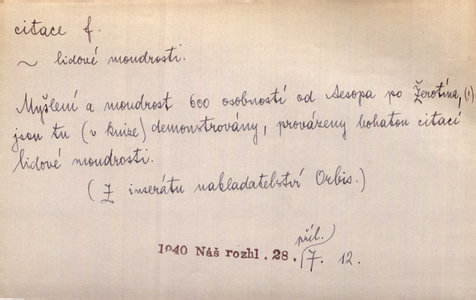 citace f.
~ lidové moudrosti.
Myšlení a moudrost 600 osobností od Aesopa po Žerotína, (!)
jsou tu (v knize) demonstrovány, provázeny bohatou citací
lidové moudrosti.
(Z inserátu nakladatelství Orbis.)
příl.
1940 Náš rozhl. 28. /7. 12.